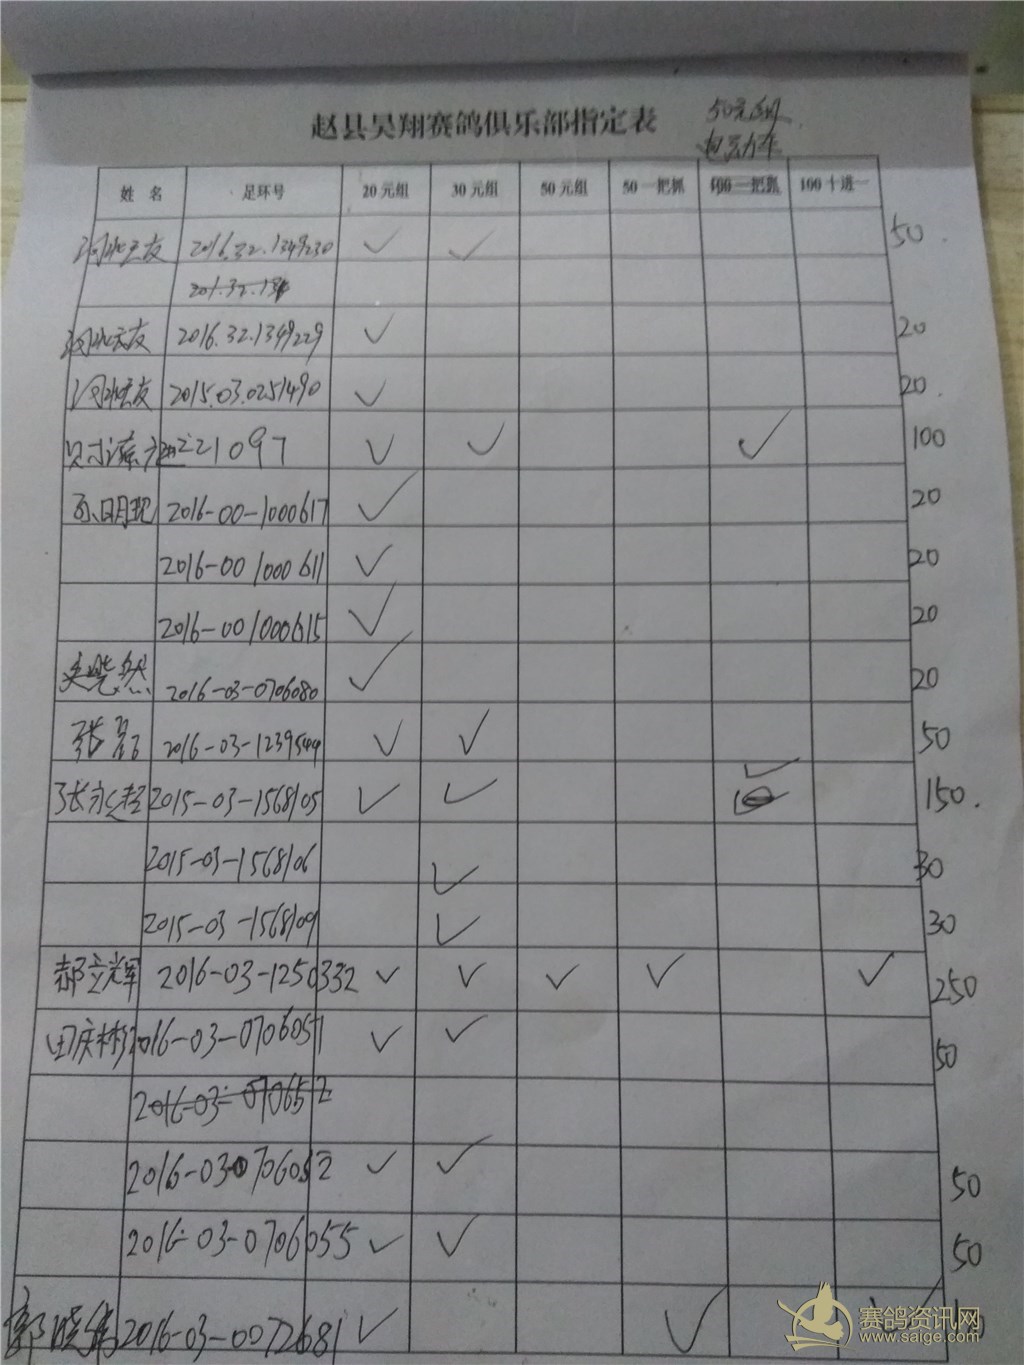 赵县昊翔赛鸽俱乐部指定表
50元组
电动车
姓 名 足环号 20元组 30元组 50元组 50一把抓 100一把抓 100十进一
河北云友 2016.32.1349230 ✓ ✓ 50
201.32.134
河北云友 2016.32.1349229 ✓ 20
河北云友 2015.03.0251490 ✓ 20
221097 ✓ ✓ ✓ 100
孙明现 2016-00-1000617 ✓ 20
2016-00 1000611 ✓ 20
2016-00 1000615 ✓ 20
吴晓然 2016-03-0706080 ✓ 20
张磊 2016-03-1239544 ✓ ✓ 50
张永超 2015-03-1568105 ✓ ✓ ✓ 150
2015-03-1568106 ✓ 30
2015-03-1568109 ✓ 30
郝立辉 2016-03-1250332 ✓ ✓ ✓ ✓ ✓ 250
田庆彬 2016-03-0706051 ✓ ✓ 50
2016-03-070652
2016-03-0706052 ✓ ✓ 50
2016-03-0706055 ✓ ✓ 50
郭晓伟 2016-03-0072681 ✓ ✓ ✓
赛鸽资讯网
www.saige.com